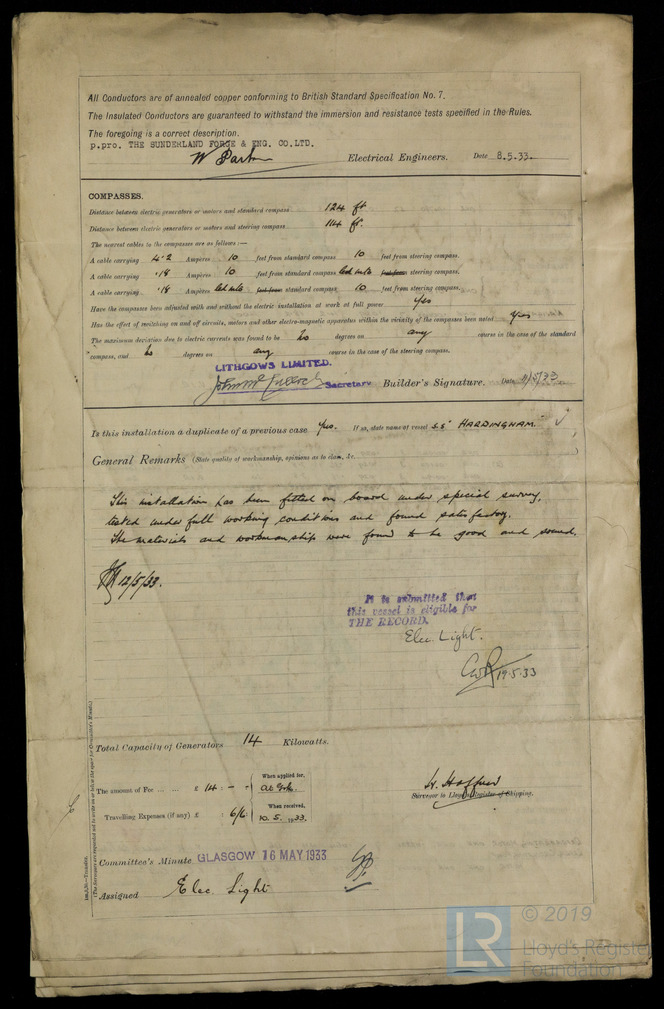 All Conductors are of annealed copper conforming to British Standard Specification No. 7.
The Insulated Conductors are guaranteed to withstand the immersion and resistance tests specified in the Rules.
The foregoing is a correct description.
p.pro. THE SUNDERLAND FORGE & ENG. CO.LTD.
W Parker Electrical Engineers. Date 8.5.33.
COMPASSES.
Distance between electric generators or motors and standard compass 124 ft
Distance between electric generators or motors and steering compass 114 ft.
The nearest cables to the compasses are as follows:—
A cable carrying 4.2 Amperes 10 feet from standard compass 10 feet from steering compass.
A cable carrying .18 Amperes 10 feet from standard compass led into feet from steering compass.
A cable carrying .18 Amperes led into feet from standard compass 10 feet from steering compass.
Have the compasses been adjusted with and without the electric installation at work at full power Yes
Has the effect of switching on and off circuits, motors and other electro-magnetic apparatus within the vicinity of the compasses been noted Yes
The maximum deviation due to electric currents was found to be No degrees on any course in the case of the standard
compass, and No degrees on any course in the case of the steering compass.
LITHGOWS LIMITED.
Secretary Builder's Signature. Date 11/5/33
Is this installation a duplicate of a previous case Yes. If so, state name of vessel S.S "HARDINGHAM."
General Remarks (State quality of workmanship, opinions as to class, &c.
This installation has been fitted on board under special survey,
tested under full working conditions and found satisfactory.
The materials and workmanship were found to be good and sound.
12/5/33.
It is submitted that
this vessel is eligible for
THE RECORD.
Elec. Light.
19.5.33
Total Capacity of Generators 14 Kilowatts.
The amount of Fee ... ... £ 14 : — : When applied for,
Travelling Expenses (if any) £ : 6/6 : When received,
10.5.1933.
Surveyor to Lloyd's Register of Shipping.
Committee's Minute GLASGOW 16 MAY 1933
Assigned Elec. Light
LR © 2019
Lloyd's Register
Foundation